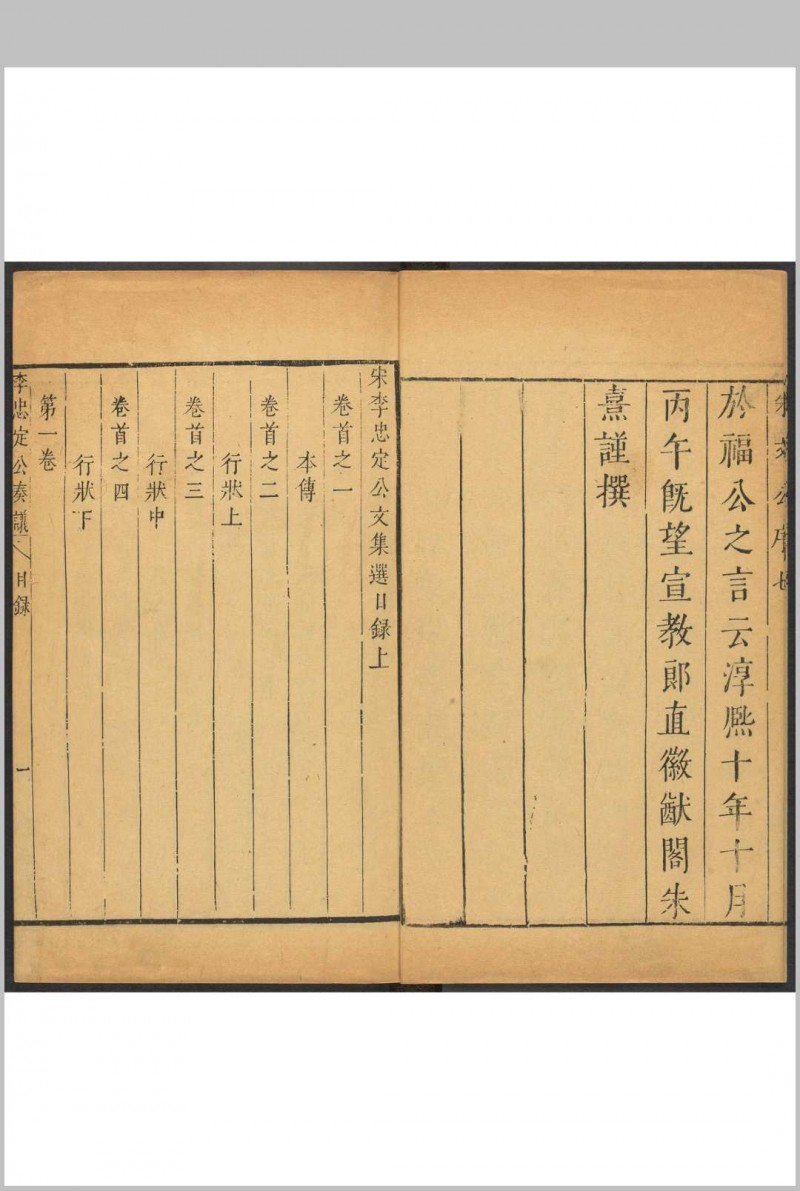 朱文公序 七
於福公之言云淳熈十年十月
丙午旣望宣教郎直徽猷閣朱
熹謹撰
宋李忠定公文集選目録上
卷首之一
本傳
卷首之二
行狀上
卷首之三
行狀中
卷首之四
行狀下
第一卷
李忠定公奏議 目録 一